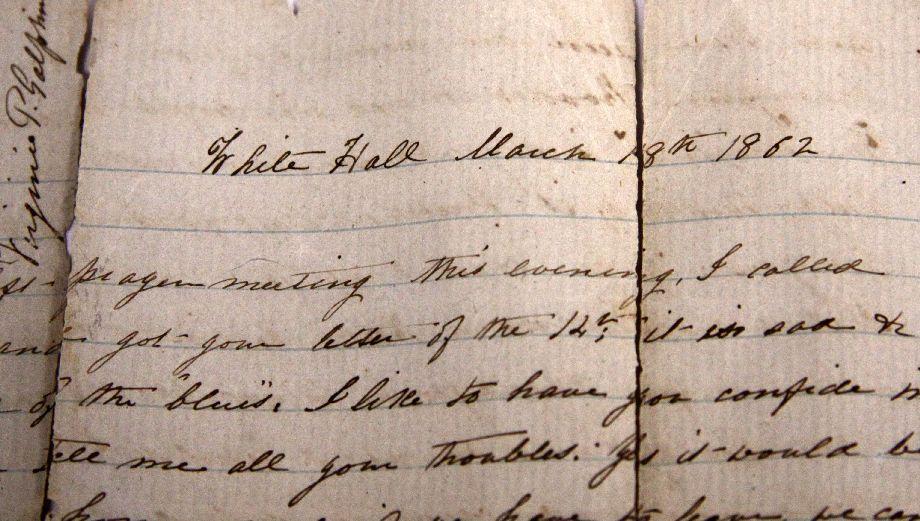 Virginia P.
White Hall March 18th 1862
prayer meeting this evening, I called
and got your letter of the 12th, it is sad &
the "blues". I like to have you confide
me all your troubles. Yes it would be
have to have we can